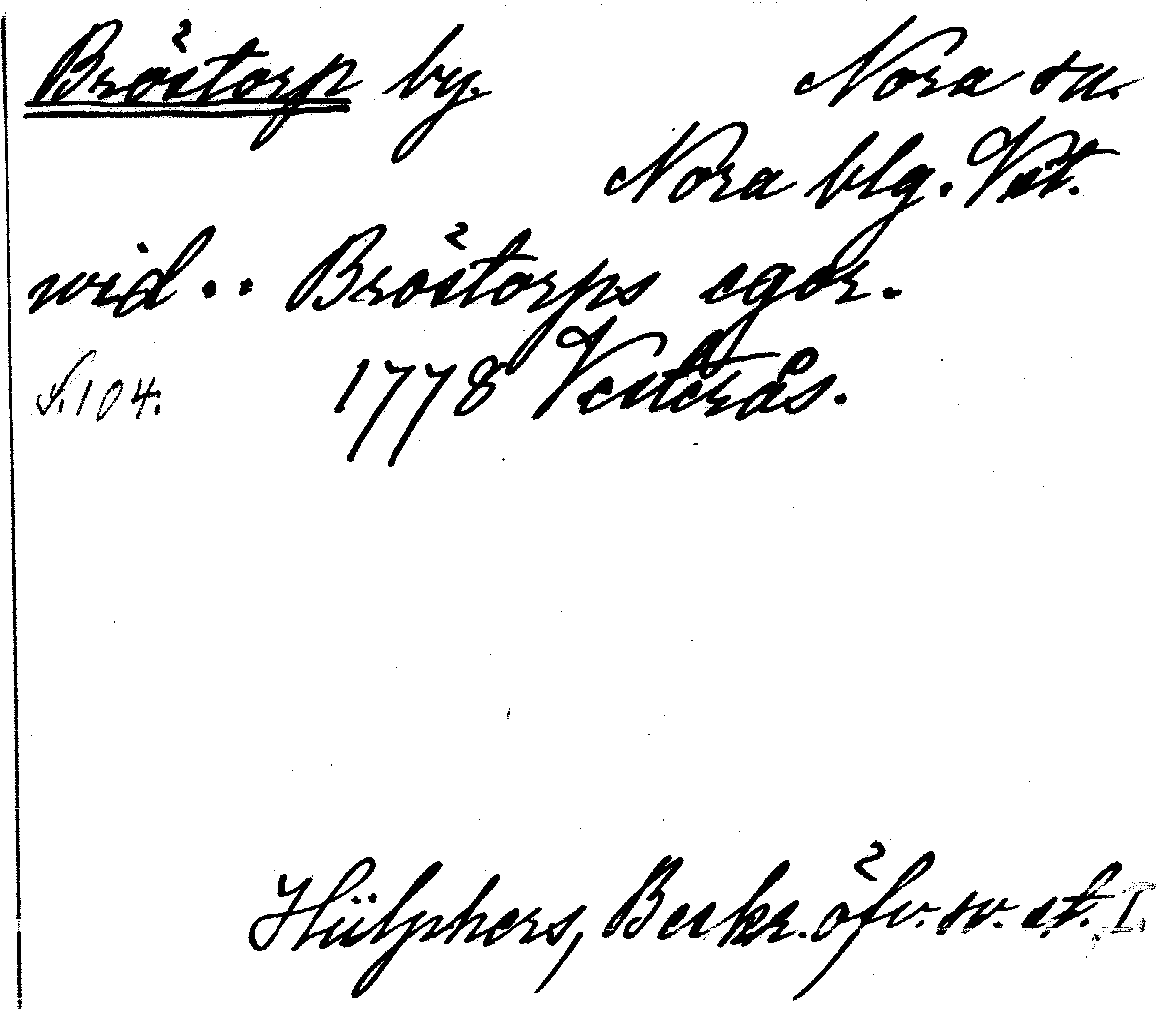 Bröstorp by. Nora sn.
Nora blg. Vst.
wid .. Bröstorps egor.
S. 104. 1778 Vesterås.
Hülphers, Beskr. öfv. sv. st. I.